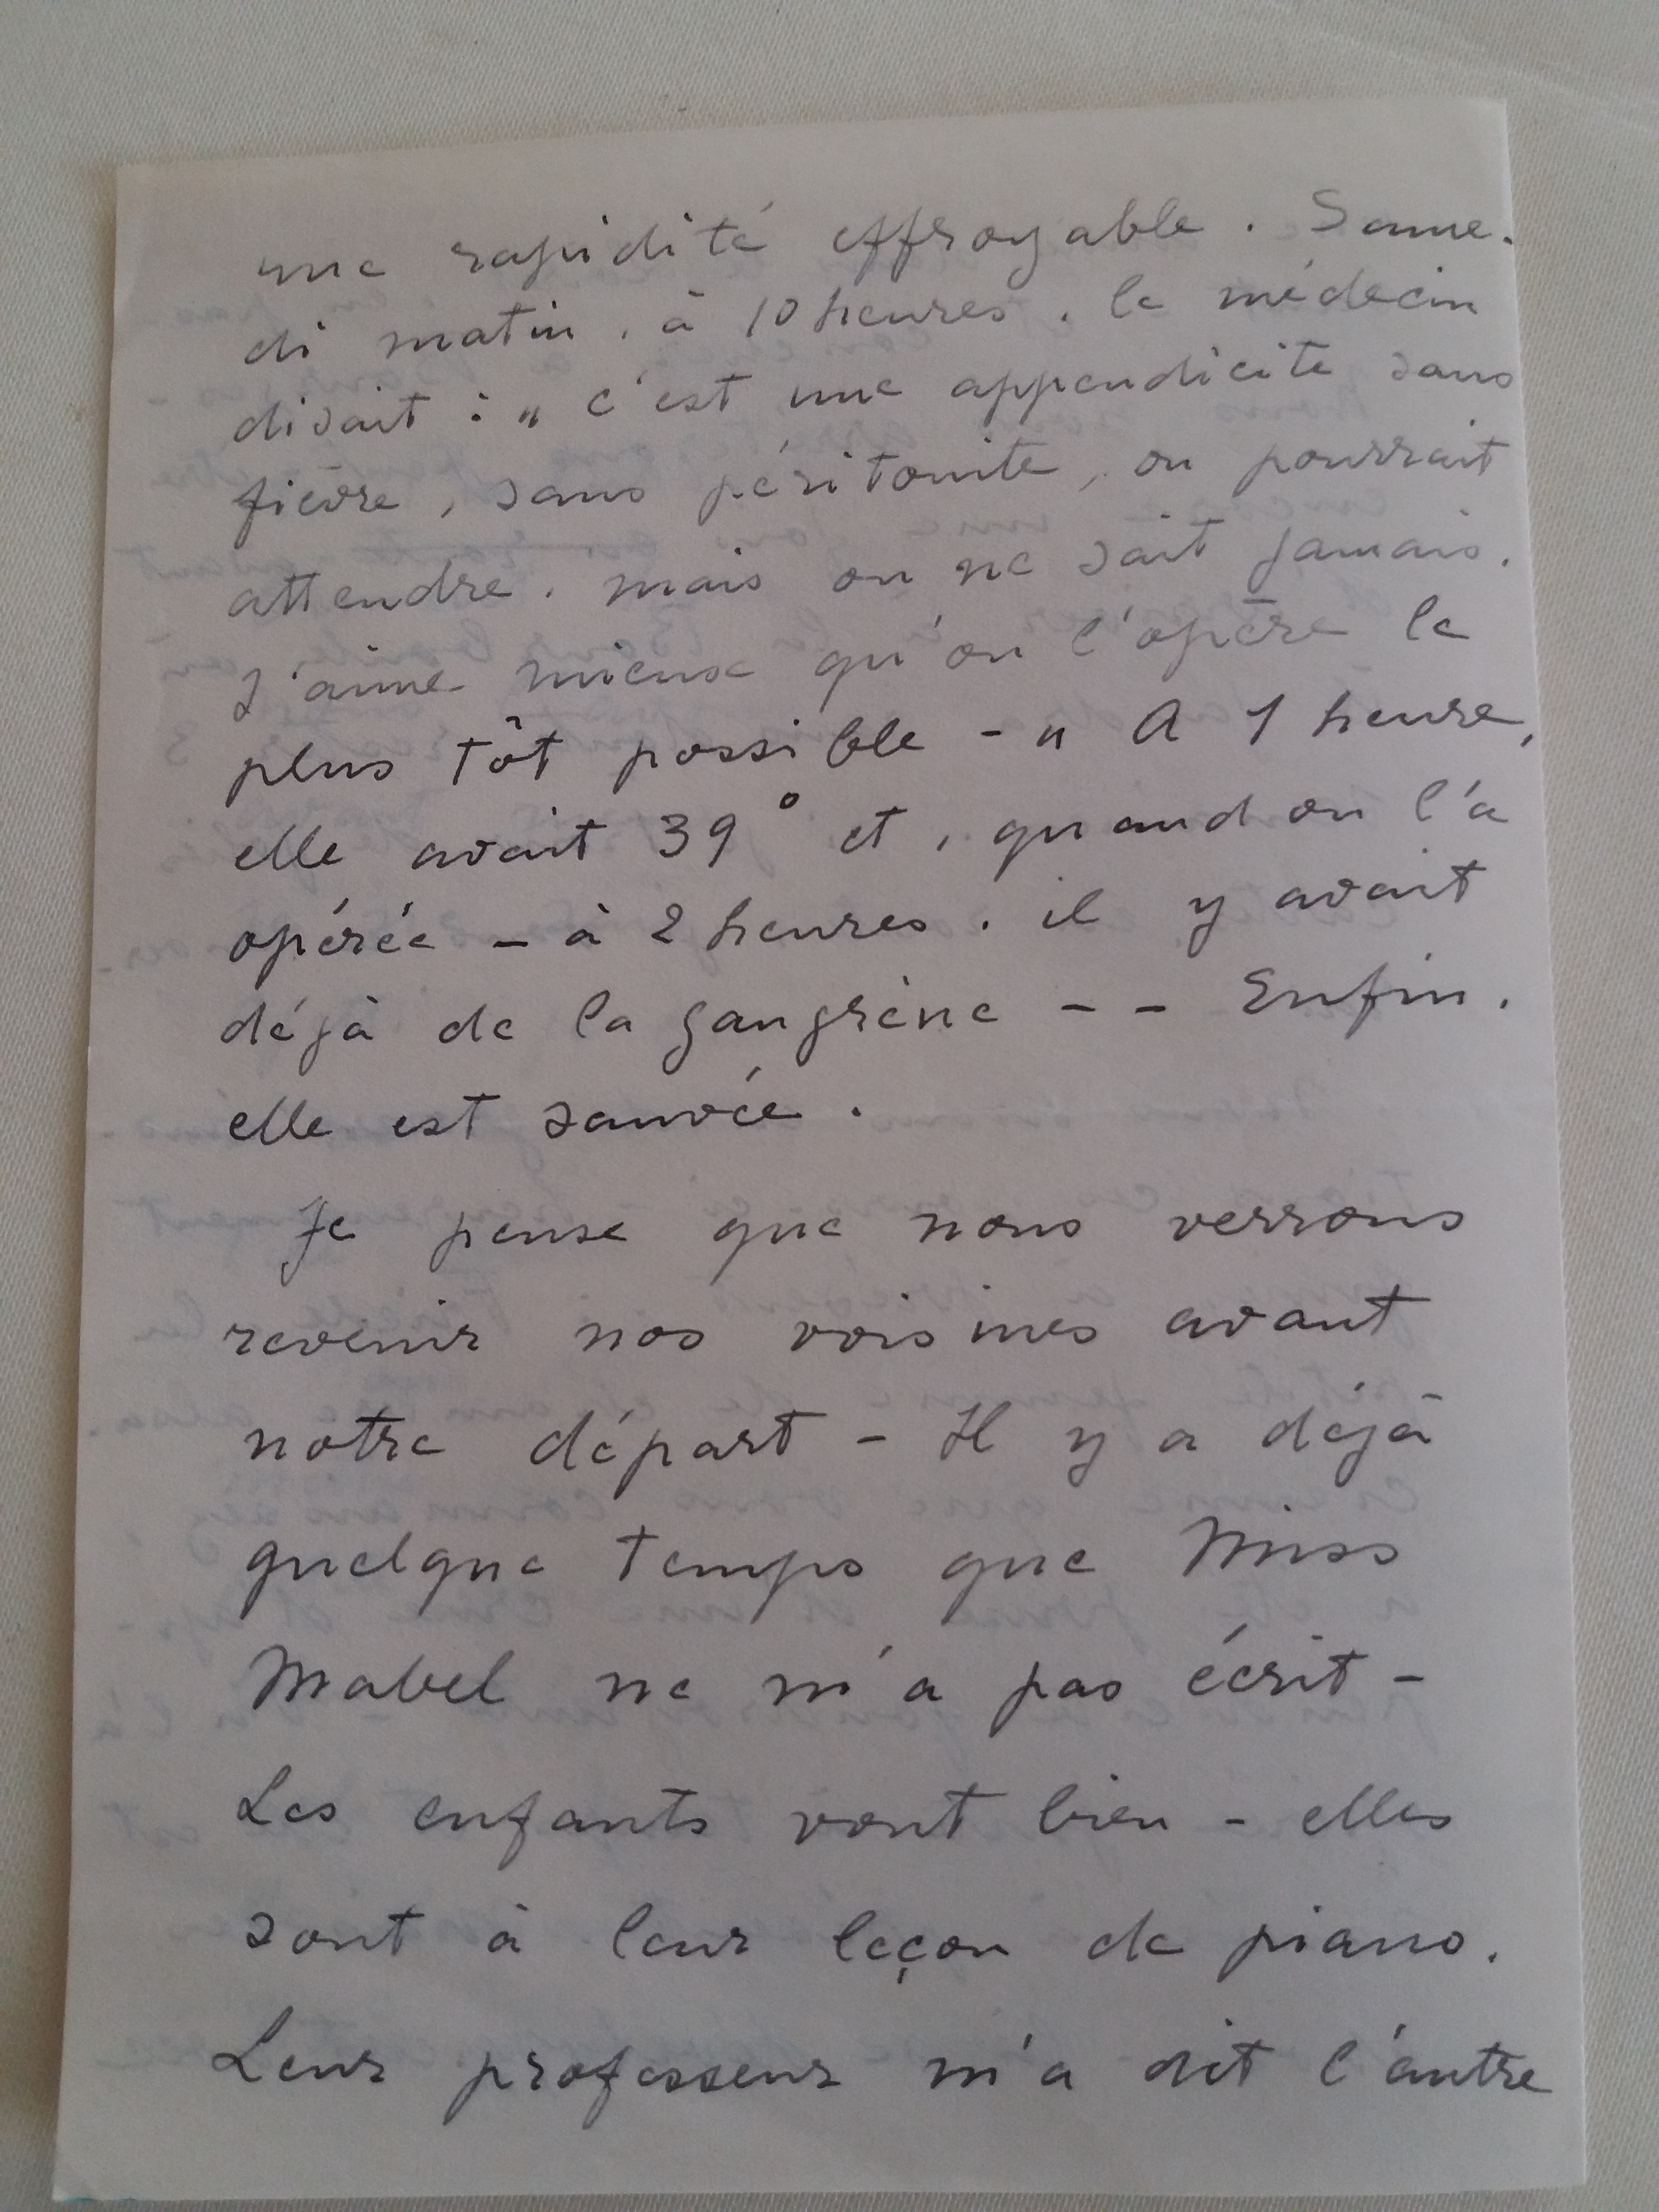 une rapidité effroyable. Same-
di matin, à 10 heures, le médecin
disait : " c'est une appendicite sans
fièvre, sans péritonite, on pourrait
attendre, mais on ne sait jamais.
J'aime mieux qu'on l'opère le
plus tôt possible - " A 1 heure,
elle avait 39° et, quand on l'a
opérée - à 2 heures, il y avait
déjà de la gangrène - - Enfin,
elle est sauvée.
Je pense que nous verrons
revenir nos voisines avant
notre départ - Il y a déjà
quelque temps que Miss
Mabel ne m'a pas écrit -
Les enfants vont bien - elles
sont à leur leçon de piano.
Leur professeur m'a dit l'autre